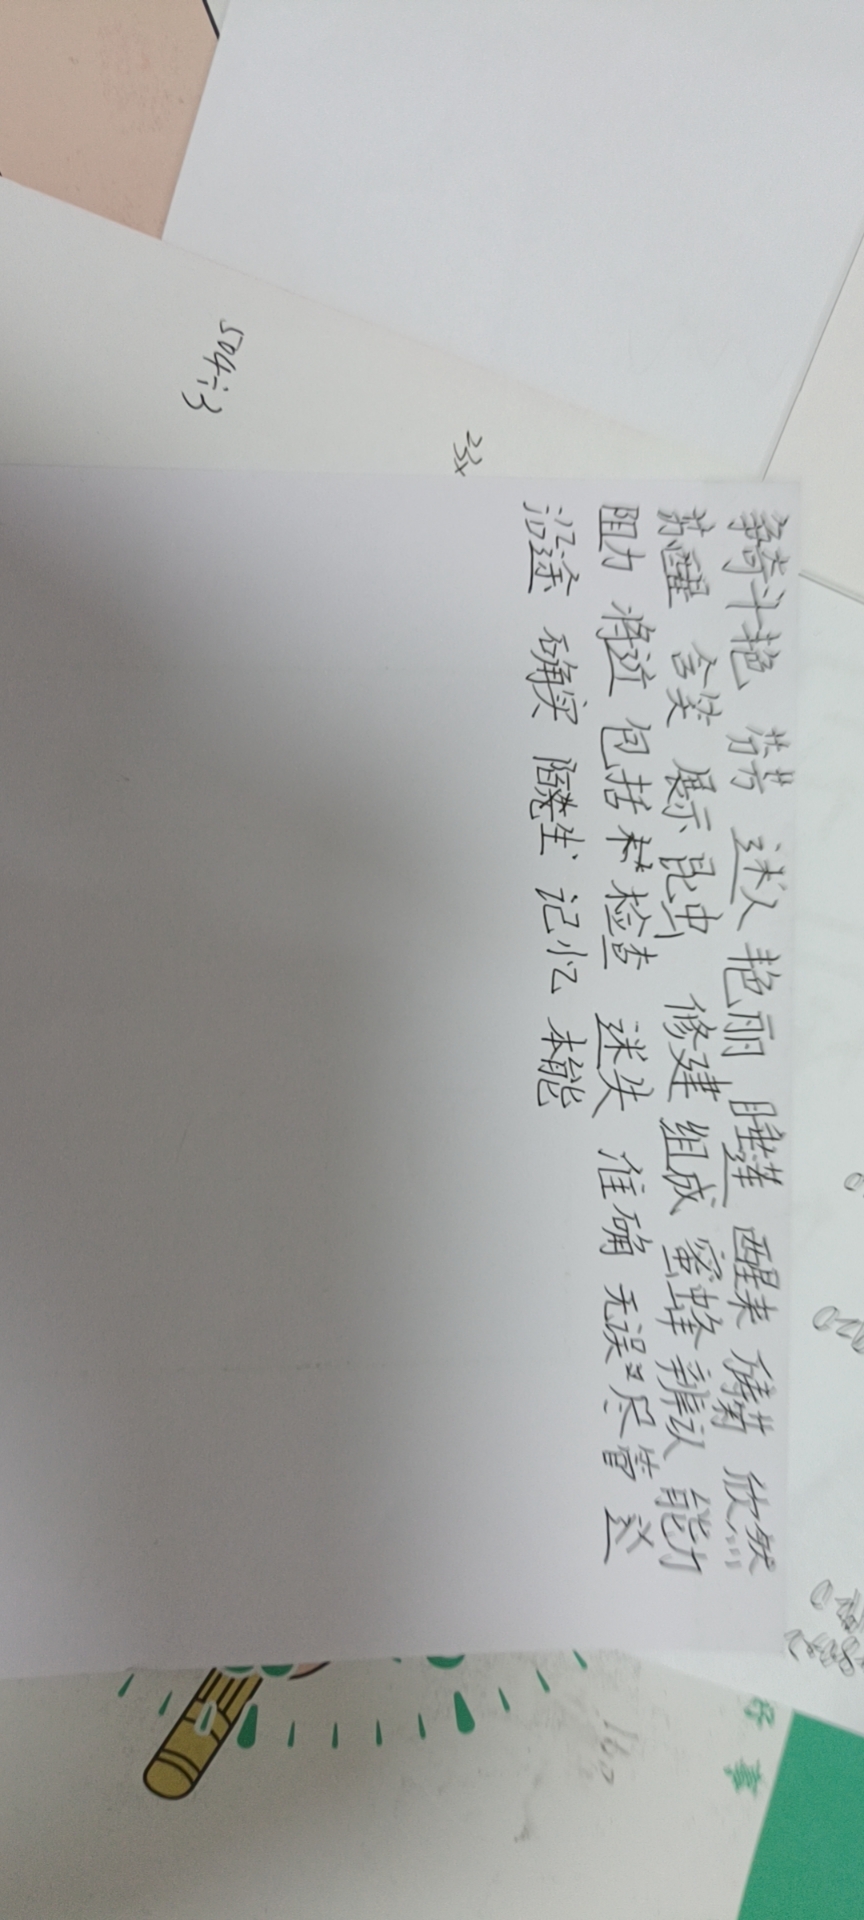 争奇斗艳 芬芳 迷人 艳丽 睡莲 醒来 欣然
苏醒 含笑 展示 昆虫 修建 组成 蜜蜂 辨认 能力
阻力 将近 包括 检查 迷失 准确 无误 尽管
沿途 确实 陌生 记忆 本能
504÷3
23×
好事
160